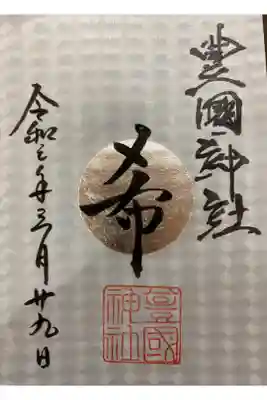 豊國神社
希
豊國
神社
令和三年三月廿九日